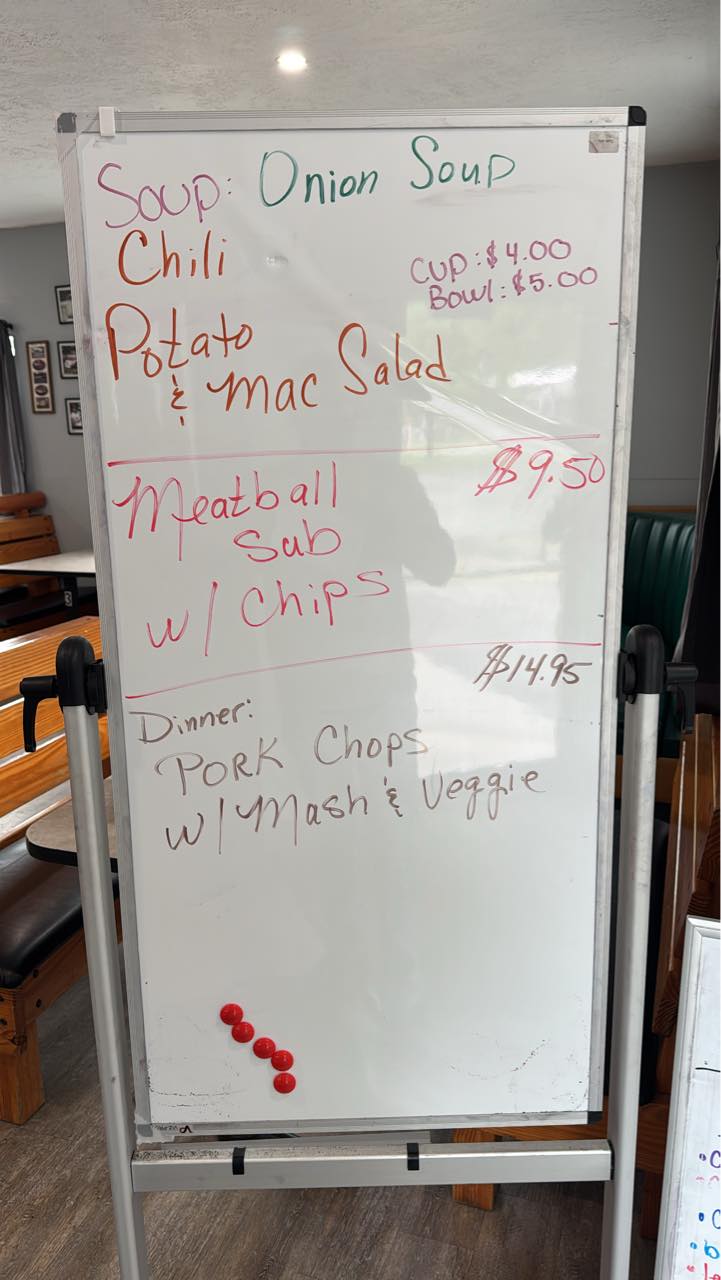 Soup: Onion Soup
Chili
Cup: $4.00
Bowl: $5.00
Potato
& Mac Salad
$9.50
Meatball
Sub
w/ Chips
$14.95
Dinner:
Pork Chops
w/ Mash & Veggie